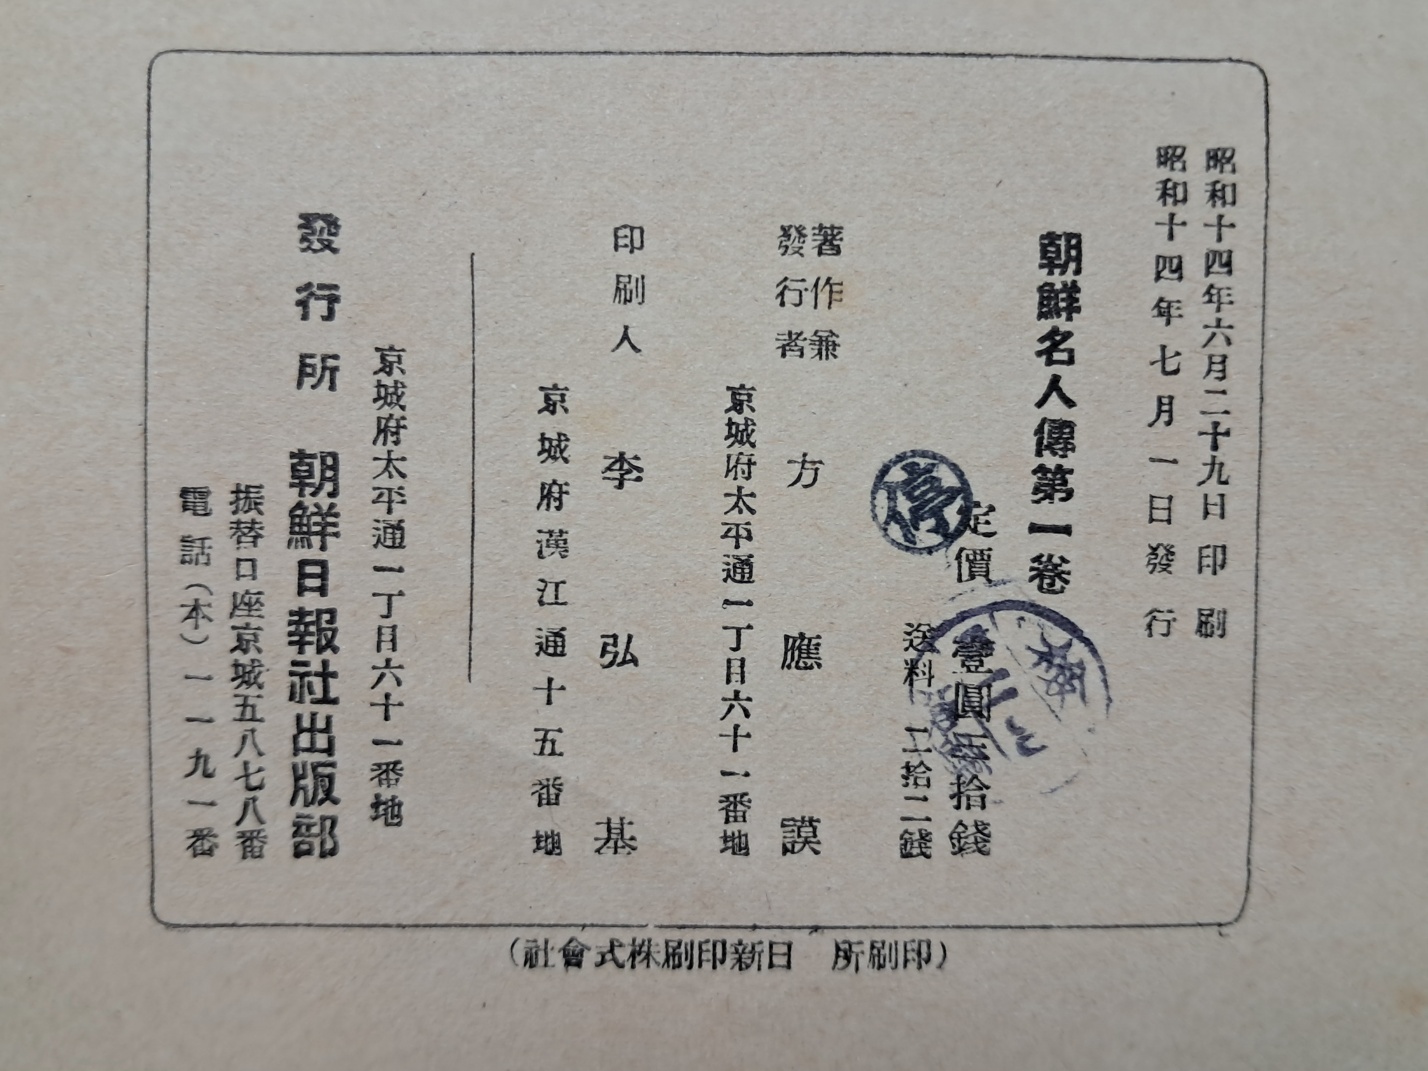 昭和十四年六月二十九日印刷
昭和十四年七月一日發行
朝鮮名人傳第一卷
定價 壹圓 拾錢
送料 二拾二錢
停
著作兼
發行者
方應謨
京城府太平通一丁目六十一番地
印刷人
李弘基
京城府漢江通十五番地
京城府太平通一丁目六十一番地
發行所 朝鮮日報社出版部
振替口座京城五八七八番
電話(本)一一九一番
(印刷所 日新印刷株式會社)